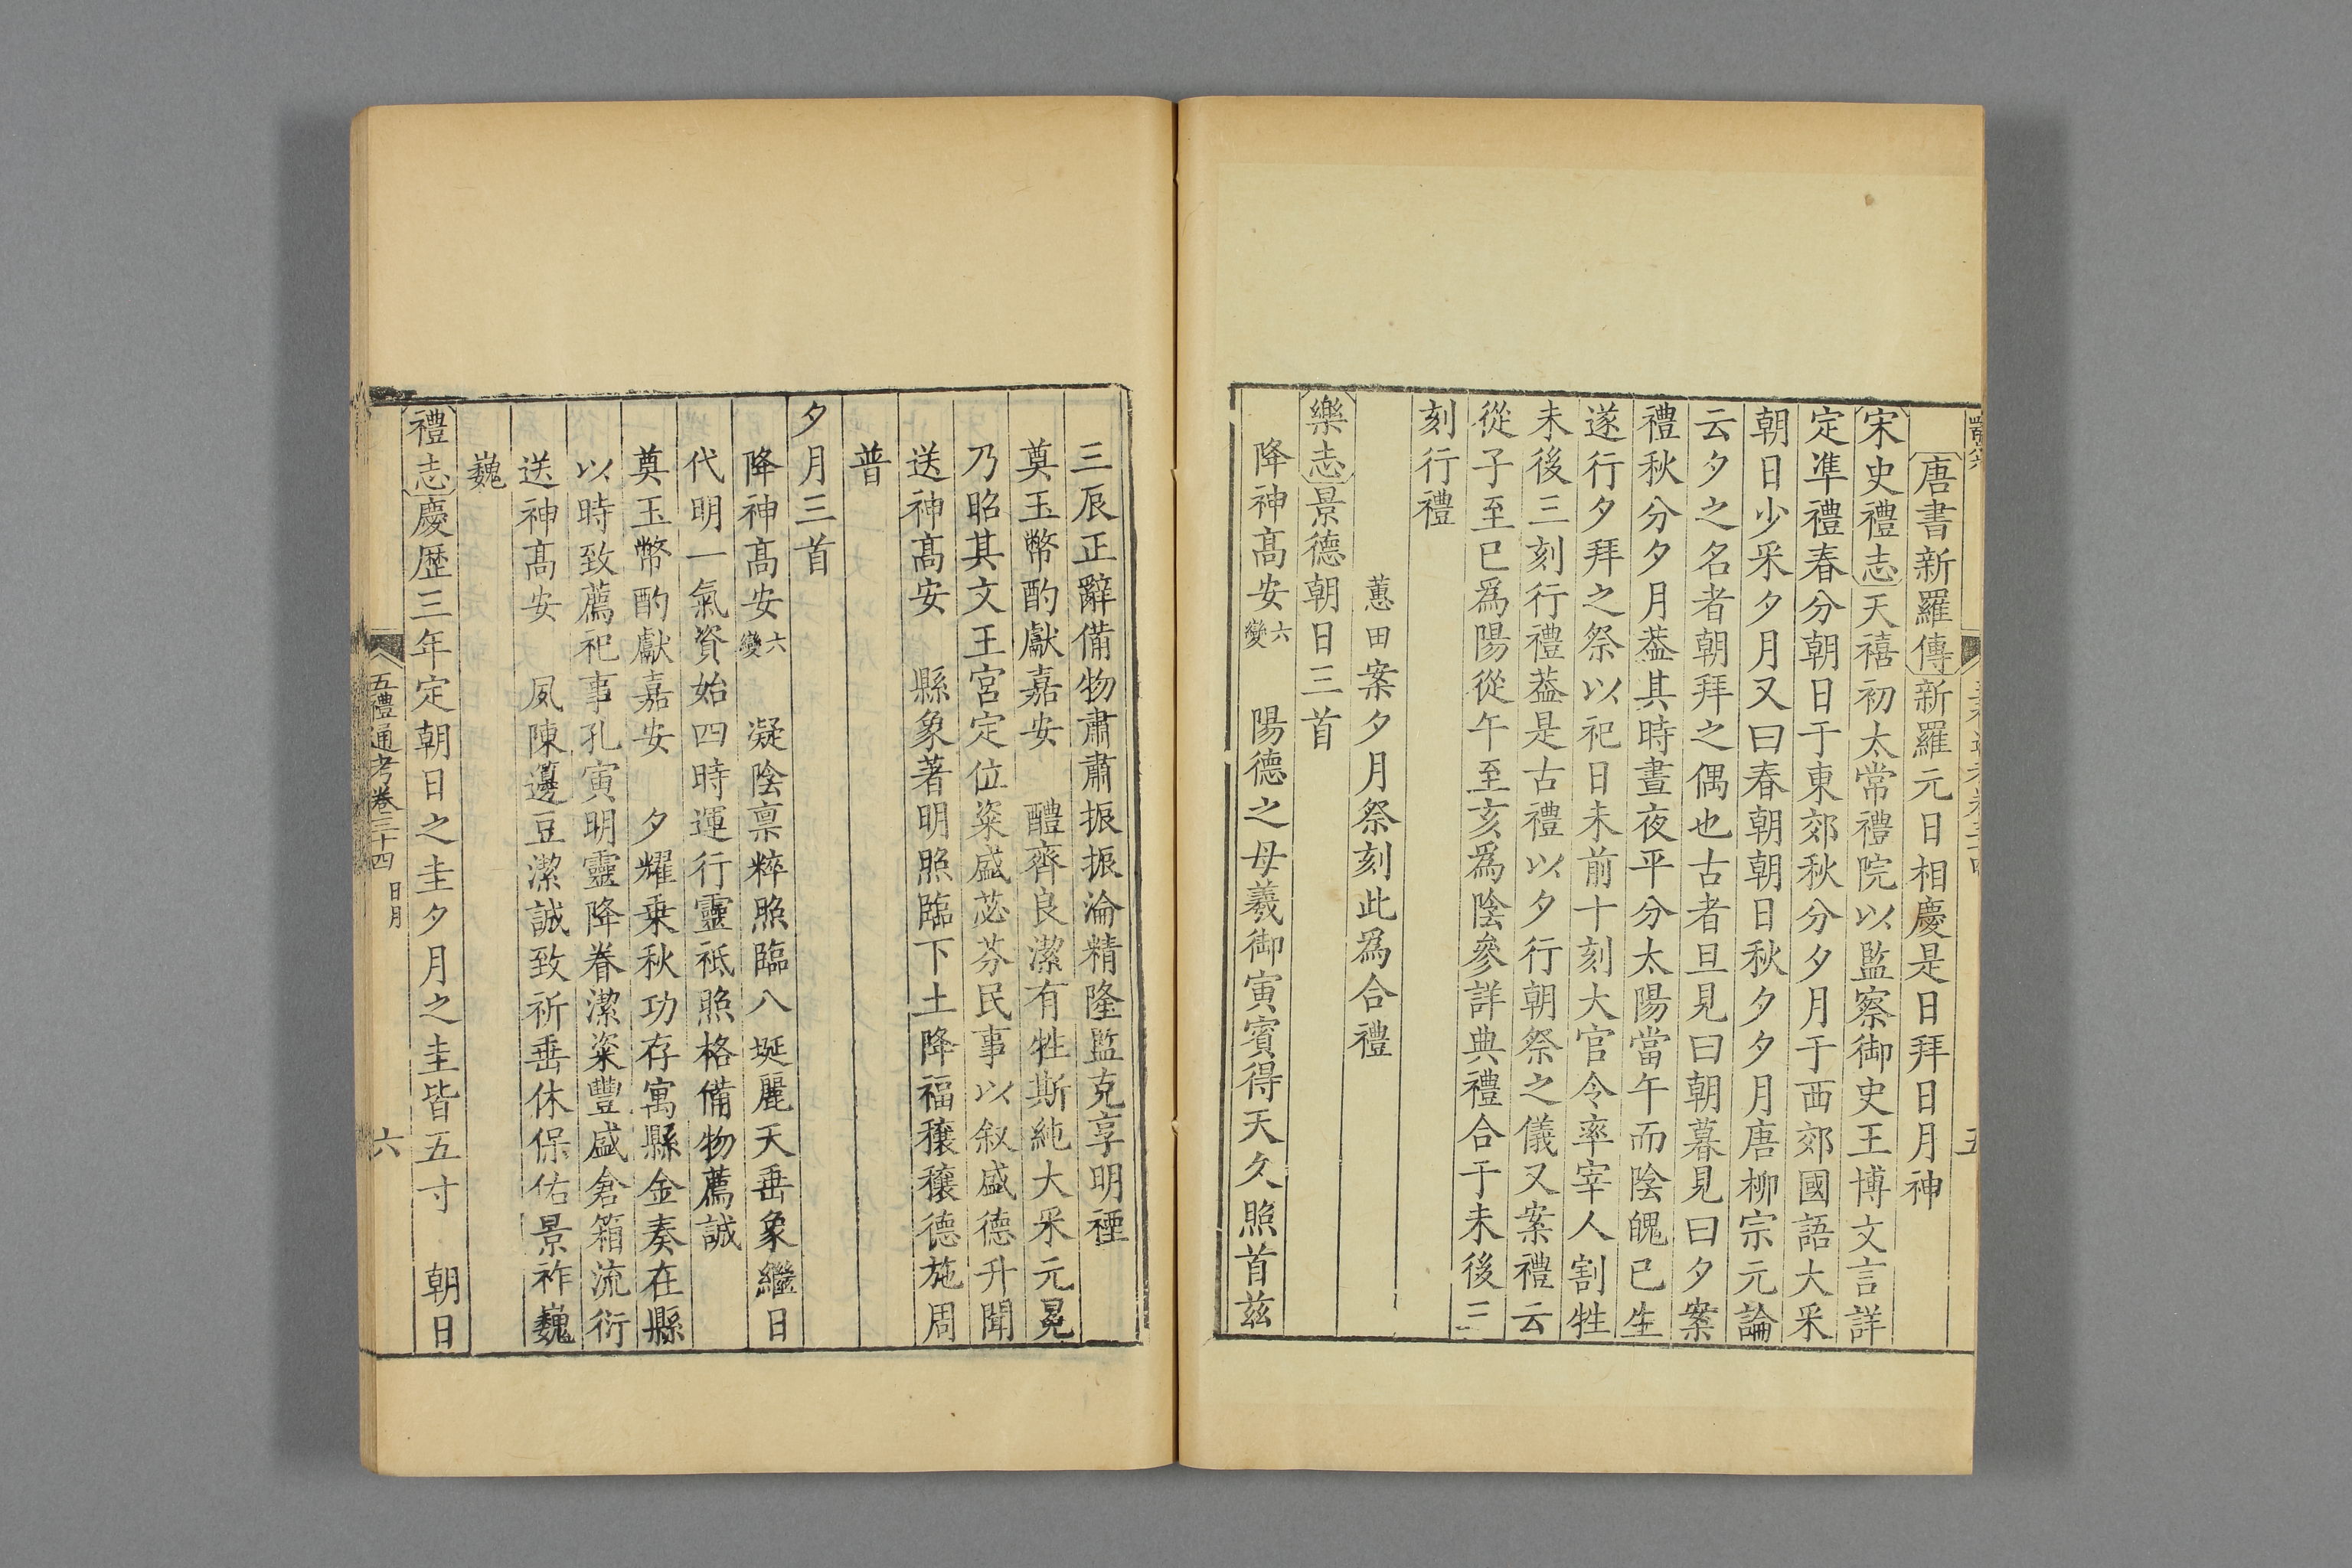 唐書新羅傳新羅元日相慶是日拜日月神
宋史禮志天禧初太常禮院以監察御史王博文言詳
定準禮春分朝日于東郊秋分夕月于西郊國語大采
朝日少采夕月又曰春朝朝日秋夕夕月唐柳宗元論
云夕之名者朝拜之偶也古者旦見曰朝暮見曰夕案
禮秋分夕月葢其時晝夜平分太陽當午而陰魄已生
遂行夕拜之祭以祀日未前十刻大官令率宰人割牲
未後三刻行禮葢是古禮以夕行朝祭之儀又案禮云
從子至巳爲陽從午至亥爲陰參詳典禮合于未後三
刻行禮
蕙田案夕月祭刻此爲合禮
樂志景德朝日三首
降神髙安六變　陽德之母羲御寅賓得天久照首兹
三辰正辭備物肅肅振振淪精隆監克享明禋
奠玉幣酌獻嘉安　醴齊良潔有牲斯純大采元冕
乃昭其文王宮定位粢盛苾芬民事以叙盛德升聞
送神髙安　縣象著明照臨下土降福穰穰德施周
普
夕月三首
降神髙安六變　凝陰禀粹照臨八埏麗天垂象繼日
代明一氣資始四時運行靈祗照格備物薦誠
奠玉幣酌獻嘉安　夕耀乗秋功存寓縣金奏在縣
以時致薦祀事孔寅明靈降眷潔粢豐盛倉箱流衍
送神髙安　夙陳籩豆潔誠致祈垂休保佑景祚巍
巍
禮志慶歷三年定朝日之圭夕月之圭皆五寸　朝日
五禮通考卷三十四　日月　六